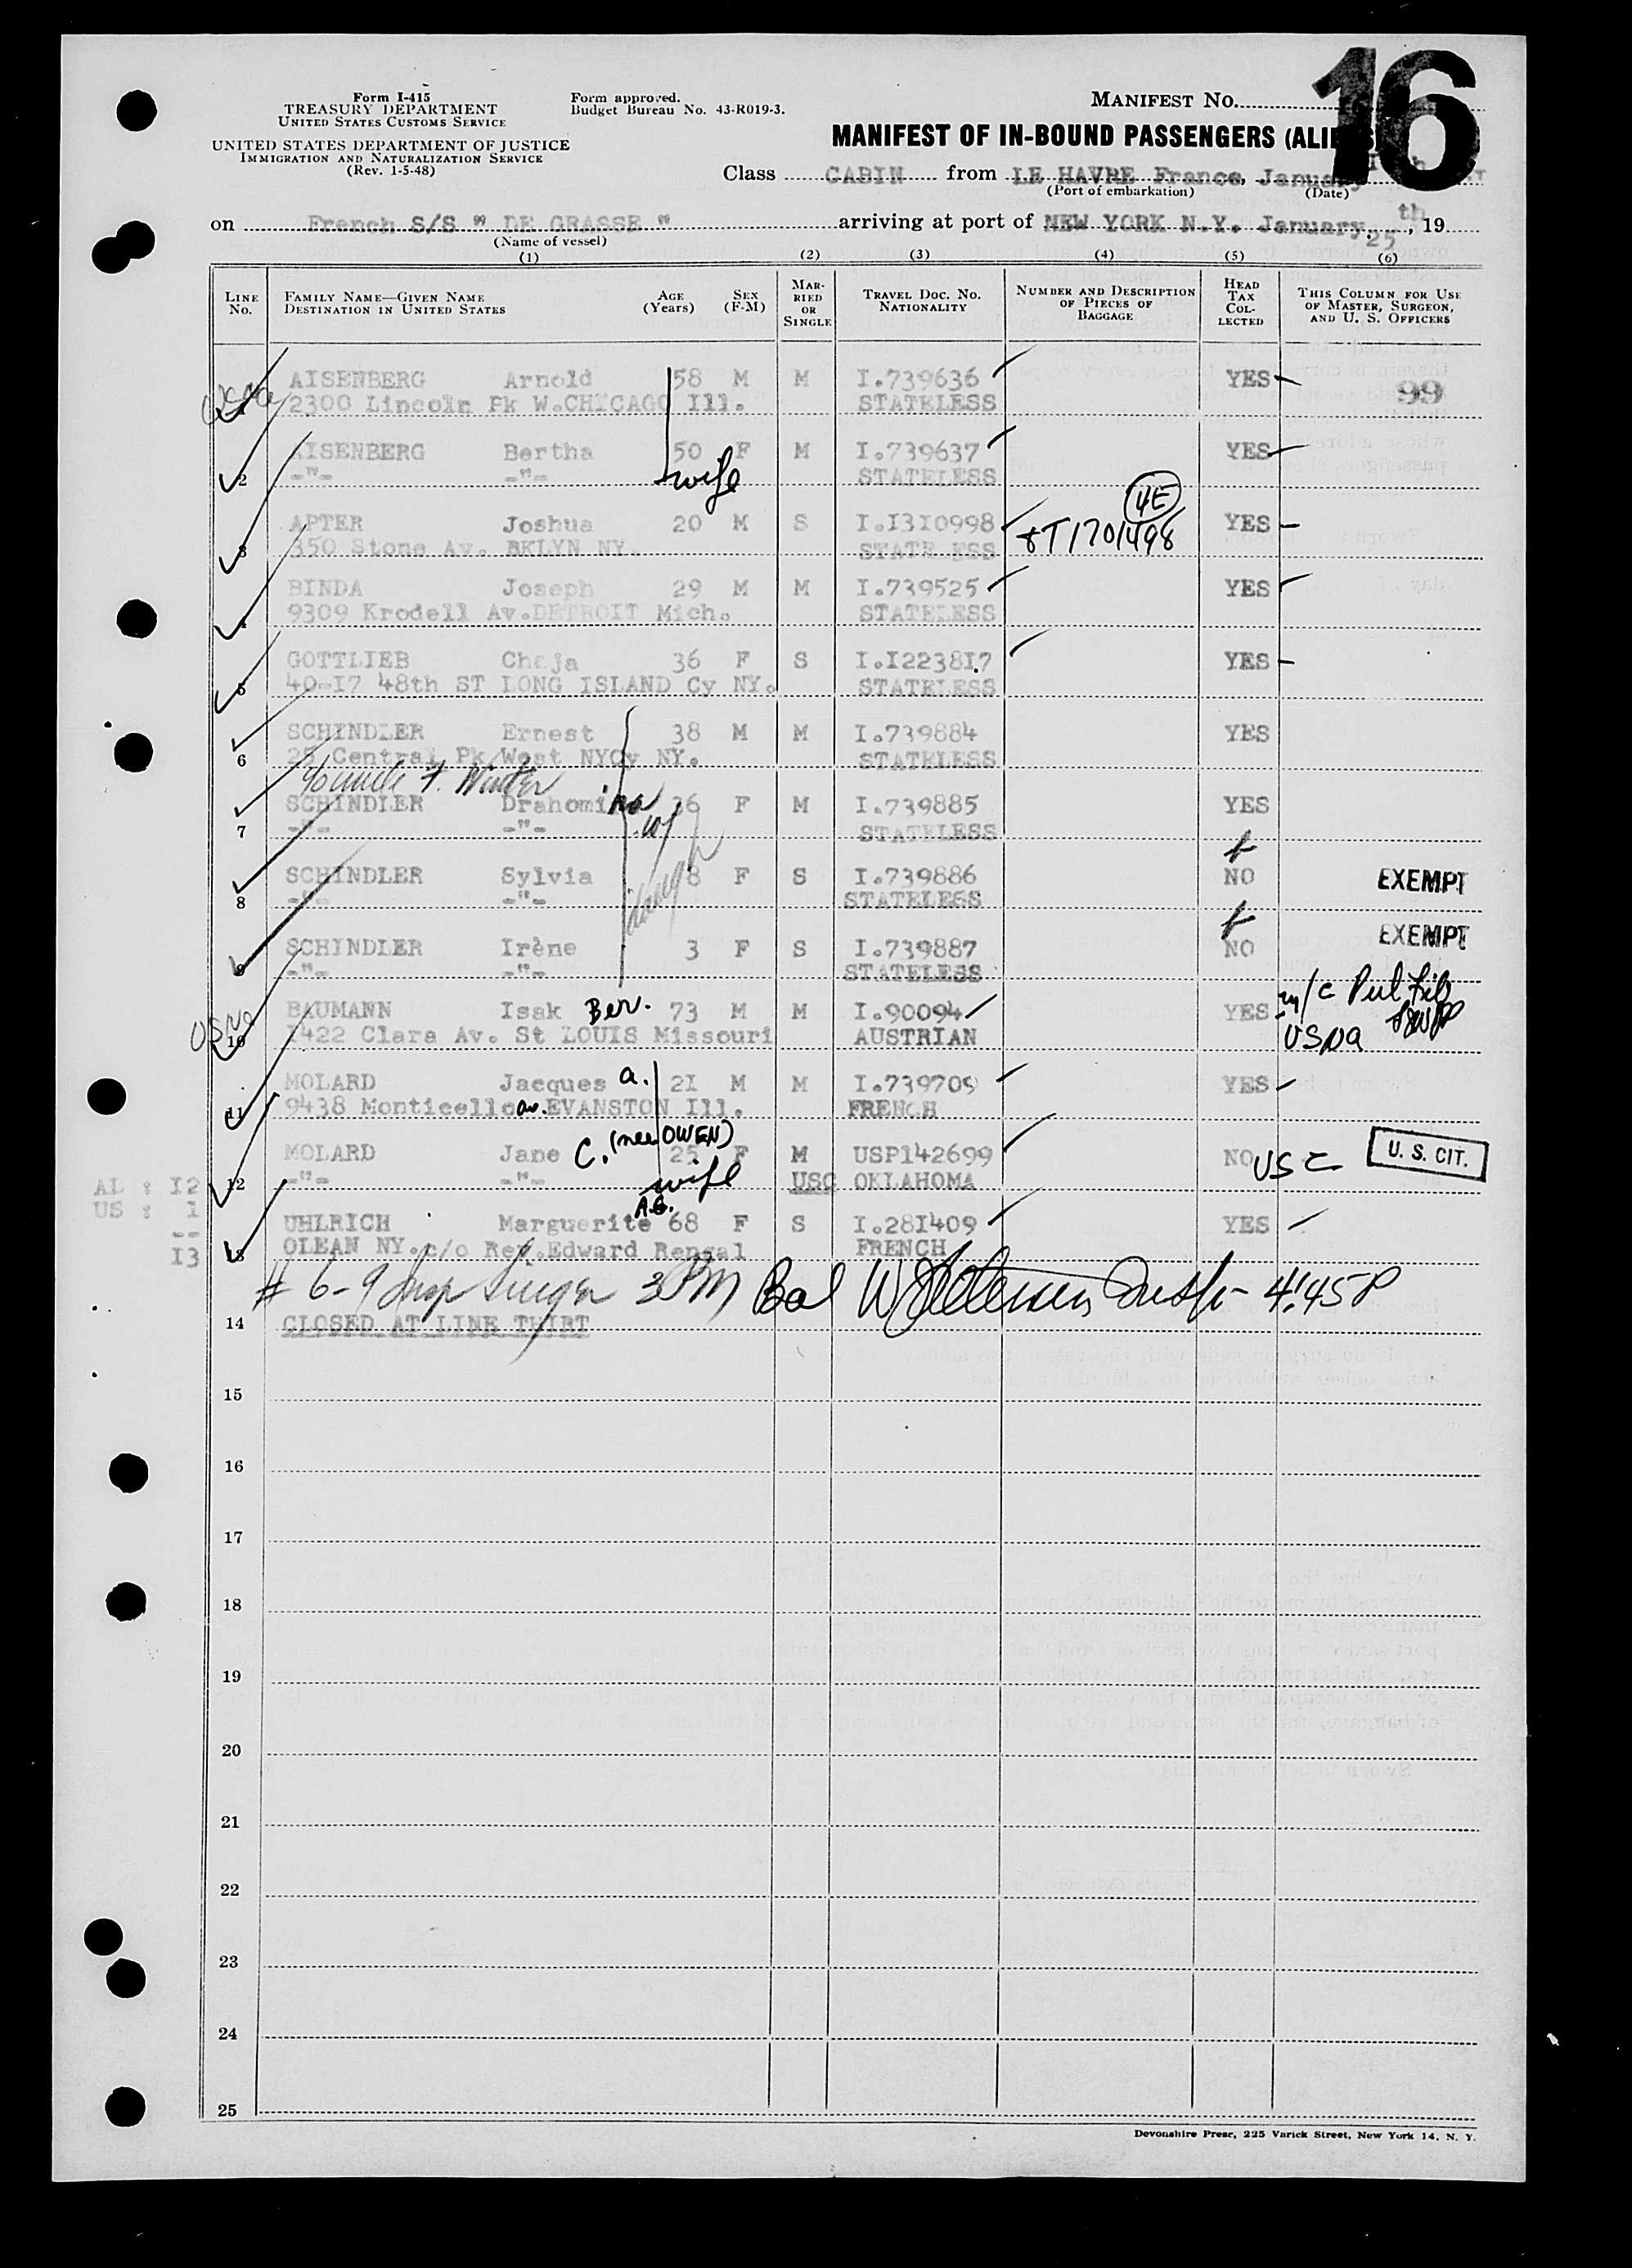 16
Form I-415
TREASURY DEPARTMENT
UNITED STATES CUSTOMS SERVICE
UNITED STATES DEPARTMENT OF JUSTICE
IMMIGRATION AND NATURALIZATION SERVICE
(Rev. 1-5-48)
Form approved.
Budget Bureau No. 43-R019-3.
MANIFEST NO.
MANIFEST OF IN-BOUND PASSENGERS (ALIE
Class CABIN from LE HAVRE France, January
(Port of embarkation) (Date)
on French S/S " DE GRASSE " arriving at port of NEW YORK N.Y. January, 25th, 19
(Name of vessel)
(1) (2) (3) (4) (5) (6)
LINE No.
FAMILY NAME—GIVEN NAME
DESTINATION IN UNITED STATES
AGE (Years)
SEX (F-M)
MARRIED OR SINGLE
TRAVEL DOC. NO.
NATIONALITY
NUMBER AND DESCRIPTION OF PIECES OF BAGGAGE
HEAD TAX COLLECTED
THIS COLUMN FOR USE OF MASTER, SURGEON, AND U. S. OFFICERS
AISENBERG Arnold 58 M M I.739636 YES 99
2300 Lincoln Pk W.CHICAGO Ill. STATELESS
AISENBERG Bertha 50 F M I.739637 YES
2 -"- -"- wife STATELESS
4E
APTER Joshua 20 M S I.I3I0998 8T1701498 YES
3 350 Stone Av. BKLYN NY. STATELESS
BINDA Joseph 29 M M I.739525 YES
4 9309 Krodell Av.DETROIT Mich. STATELESS
GOTTLIEB Chaja 36 F S I.I2238I7 YES
5 40-I7 48th ST LONG ISLAND Cy NY. STATELESS
SCHINDLER Ernest 38 M M I.739884 YES
6 25 Central Pk West NYCy NY. STATELESS
c/o uncle F. Winter
SCHINDLER Drahomira 36 F M I.739885 YES
7 -"- -"- wf STATELESS
SCHINDLER Sylvia 8 F S I.739886 NO EXEMPT
8 -"- -"- daugh STATELESS
SCHINDLER Irène 3 F S I.739887 NO EXEMPT
9 -"- -"- STATELESS
BAUMANN Isak Ber. 73 M M I.90094 YES
10 1422 Clara Av. St LOUIS Missouri AUSTRIAN USNa
MOLARD Jacques A. 2I M M I.739709 YES
11 9438 Monticello av. EVANSTON Ill. FRENCH
MOLARD Jane C. (nee OWEN) 25 F M USP142699 NO USC U. S. CIT.
12 -"- -"- wife USC OKLAHOMA
AL : I2
US : 1
--
I3
UHLRICH Marguerite A.G. 68 F S I.28I409 YES
13 OLEAN NY. c/o Rev. Edward Rengal FRENCH
# 6-9 Insp Singer 3 PM Bal Insp - 4:45 P
14 CLOSED AT LINE THIRT
15
16
17
18
19
20
21
22
23
24
25
Devonshire Press, 225 Varick Street, New York 14, N. Y.